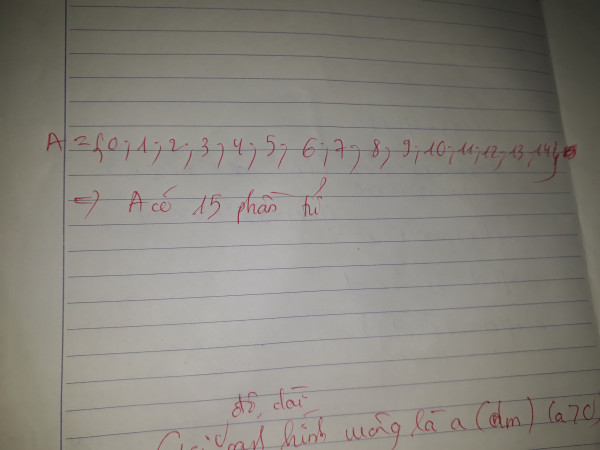 A = {0; 1; 2; 3; 4; 5; 6; 7; 8; 9; 10; 11; 12; 13; 14}
=> A có 15 phần tử
độ dài
hình vuông là a (dm) (a>0)